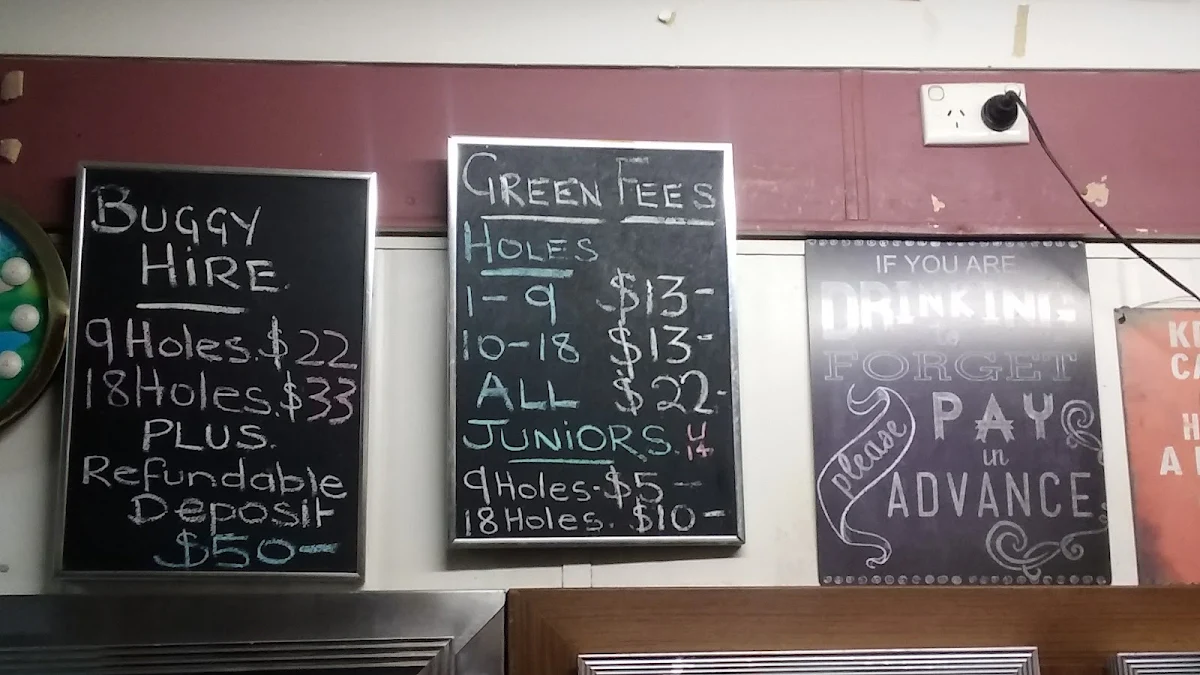 BUGGY
HIRE
9 Holes. $22
18 Holes. $33
PLUS.
Refundable
Deposit
$50-
GREEN FEES
HOLES
1-9 $13-
10-18 $13-
ALL $22-
JUNIORS. U
14
9 Holes- $5-
18 Holes. $10-
IF YOU ARE
DRINKING
to
FORGET
please
PAY
in
ADVANCE
H
A